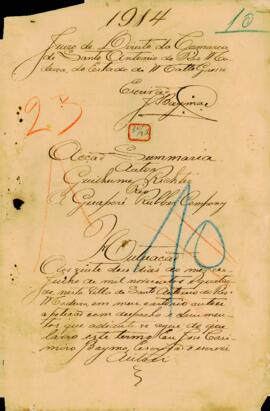 1914
10
Juizo de Direito da Comarca
de Santo Antonio do Rio Ma
deira, do Estado de Matto Grosso
Escrivão
J. Bayma
23
Acção Summaria
Autor
Guilherme
Réo
A Guaporé Rubber Company
10
Autuação
Aos vinte dias do mez de
junho de mil novecentos e quatorze,
nesta Villa de Santo Antonio do Rio
Madeira, em meu cartorio autuei
a petição com despacho e documen
tos que adiante se segue do que
lavro este termo. Eu José Casi
miro Bayma, Escrivão o escrevi